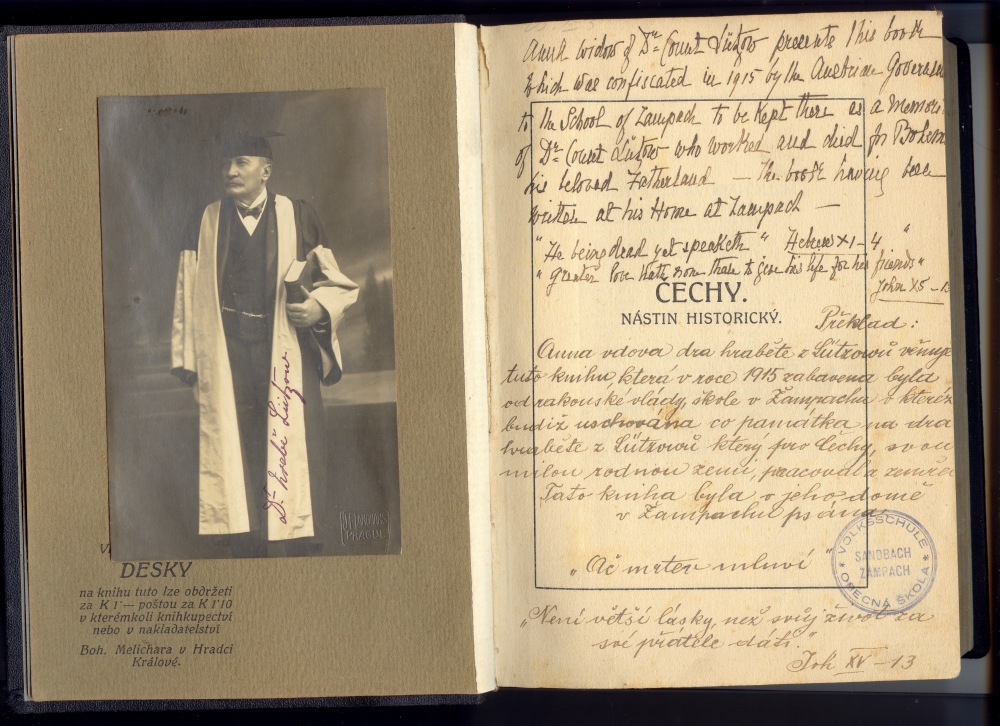 Dr. hrabě Lützow
LANGHANS
PRAGUE
DESKY
na knihu tuto lze obdržeti
za K 1·— poštou za K 1·10
v kterémkoli knihkupectví
nebo v nakladatelství
Boh. Melichara v Hradci
Králové.
widow of Dr. Count Lützow presents this book
which was confiscated in 1915 by the Austrian
to the School of Zampach to be kept there as a
of Dr. Count Lützow who worked and died for
his beloved Fatherland — the book having been
written at his Home at Zampach —
"He being dead yet speaketh" Hebrew XI-4
"greater love hath none than to give his life for his friends"
John XV - 13
ČECHY.
NÁSTIN HISTORICKÝ.
Překlad:
Anna vdova dra hraběte z Lützowů věnuje
tuto knihu, která v roce 1915 zabavena byla
od rakouské vlády, škole v Žampachu v kteréž
budiž uschována co památka na dra
hraběte z Lützowů který pro Čechy, svou
milou rodnou zemi, pracoval a zemřel
Tato kniha byla v jeho domě
v Žampachu psána.
"Ač mrtev mluví"
VOLKSSCHULE
SANDBACH
ŽAMPACH
OBECNÁ ŠKOLA
"Není větší lásky, než svůj život za
své přátele dáti."
Joh XV - 13